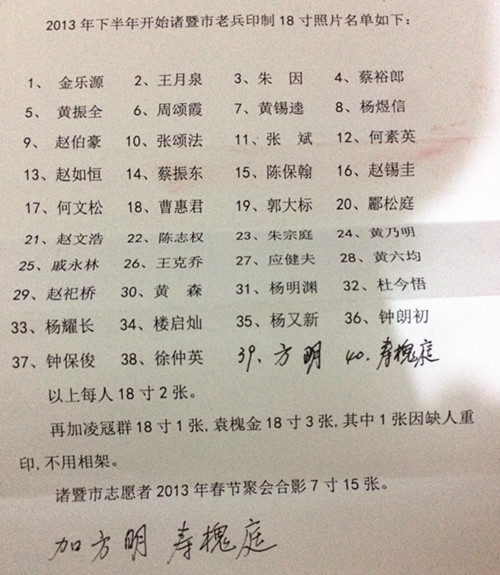 2013年下半年开始诸暨市老兵印制18寸照片名单如下：
1、金乐源 2、王月泉 3、朱 因 4、蔡裕郎
5、黄振全 6、周颂霞 7、黄锡逵 8、杨煜信
9、赵伯豪 10、张颂法 11、张 斌 12、何素英
13、赵如恒 14、蔡振东 15、陈保翰 16、赵锡圭
17、何文松 18、曹惠君 19、郭大标 20、郦松庭
21、赵文浩 22、陈志权 23、朱宗庭 24、黄乃明
25、戚永林 26、王克乔 27、应健夫 28、黄六均
29、赵祀桥 30、黄 森 31、杨明渊 32、杜今悟
33、杨耀长 34、楼启灿 35、杨又新 36、钟朗初
37、钟保俊 38、徐仲英 39、方明 40、寿槐庭
以上每人18寸2张。
再加凌冠群18寸1张,袁槐金18寸3张,其中1张因缺人重
印,不用相架。
诸暨市志愿者2013年春节聚会合影7寸15张。
加方明 寿槐庭